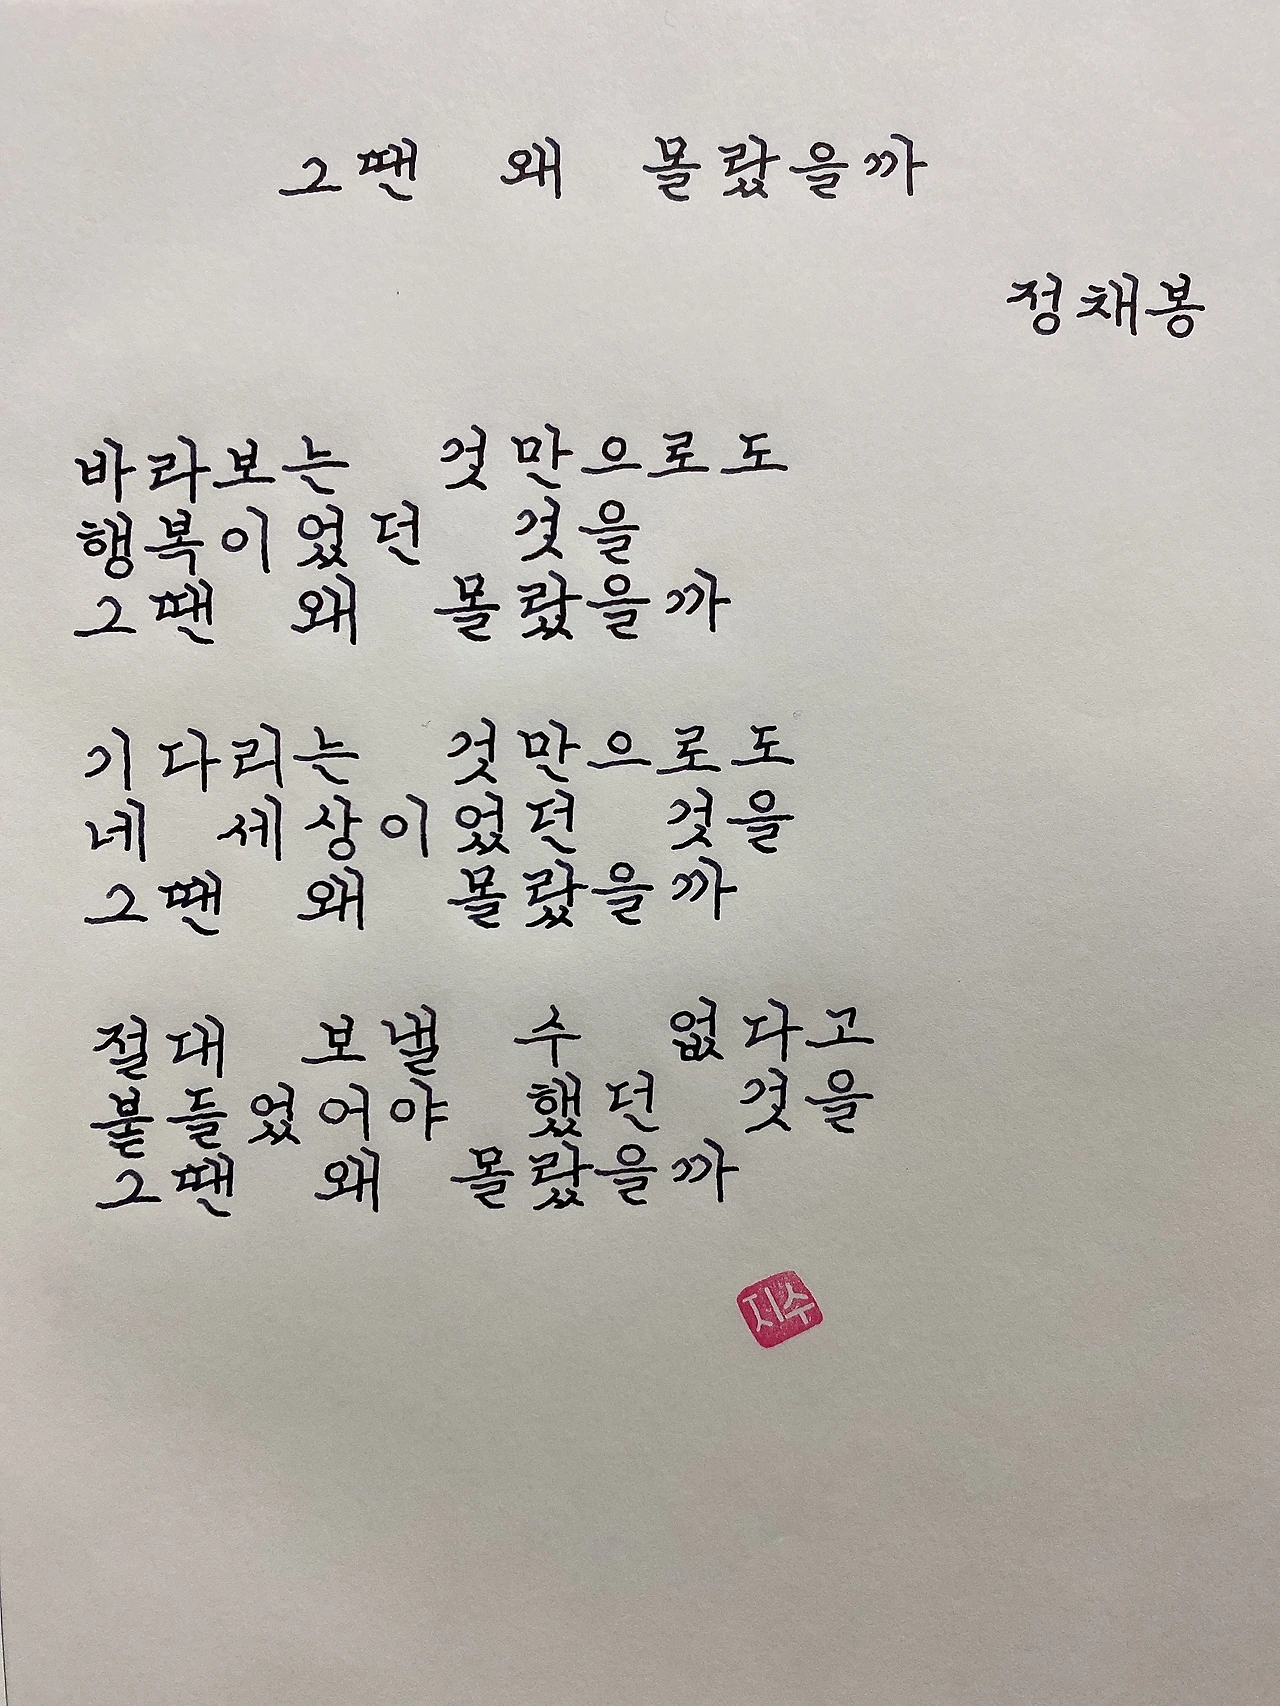 그땐 왜 몰랐을까
정채봉
바라보는 것만으로도
행복이었던 것을
그땐 왜 몰랐을까
기다리는 것만으로도
네 세상이었던 것을
그땐 왜 몰랐을까
절대 보낼 수 없다고
붙들었어야 했던 것을
그땐 왜 몰랐을까
지수